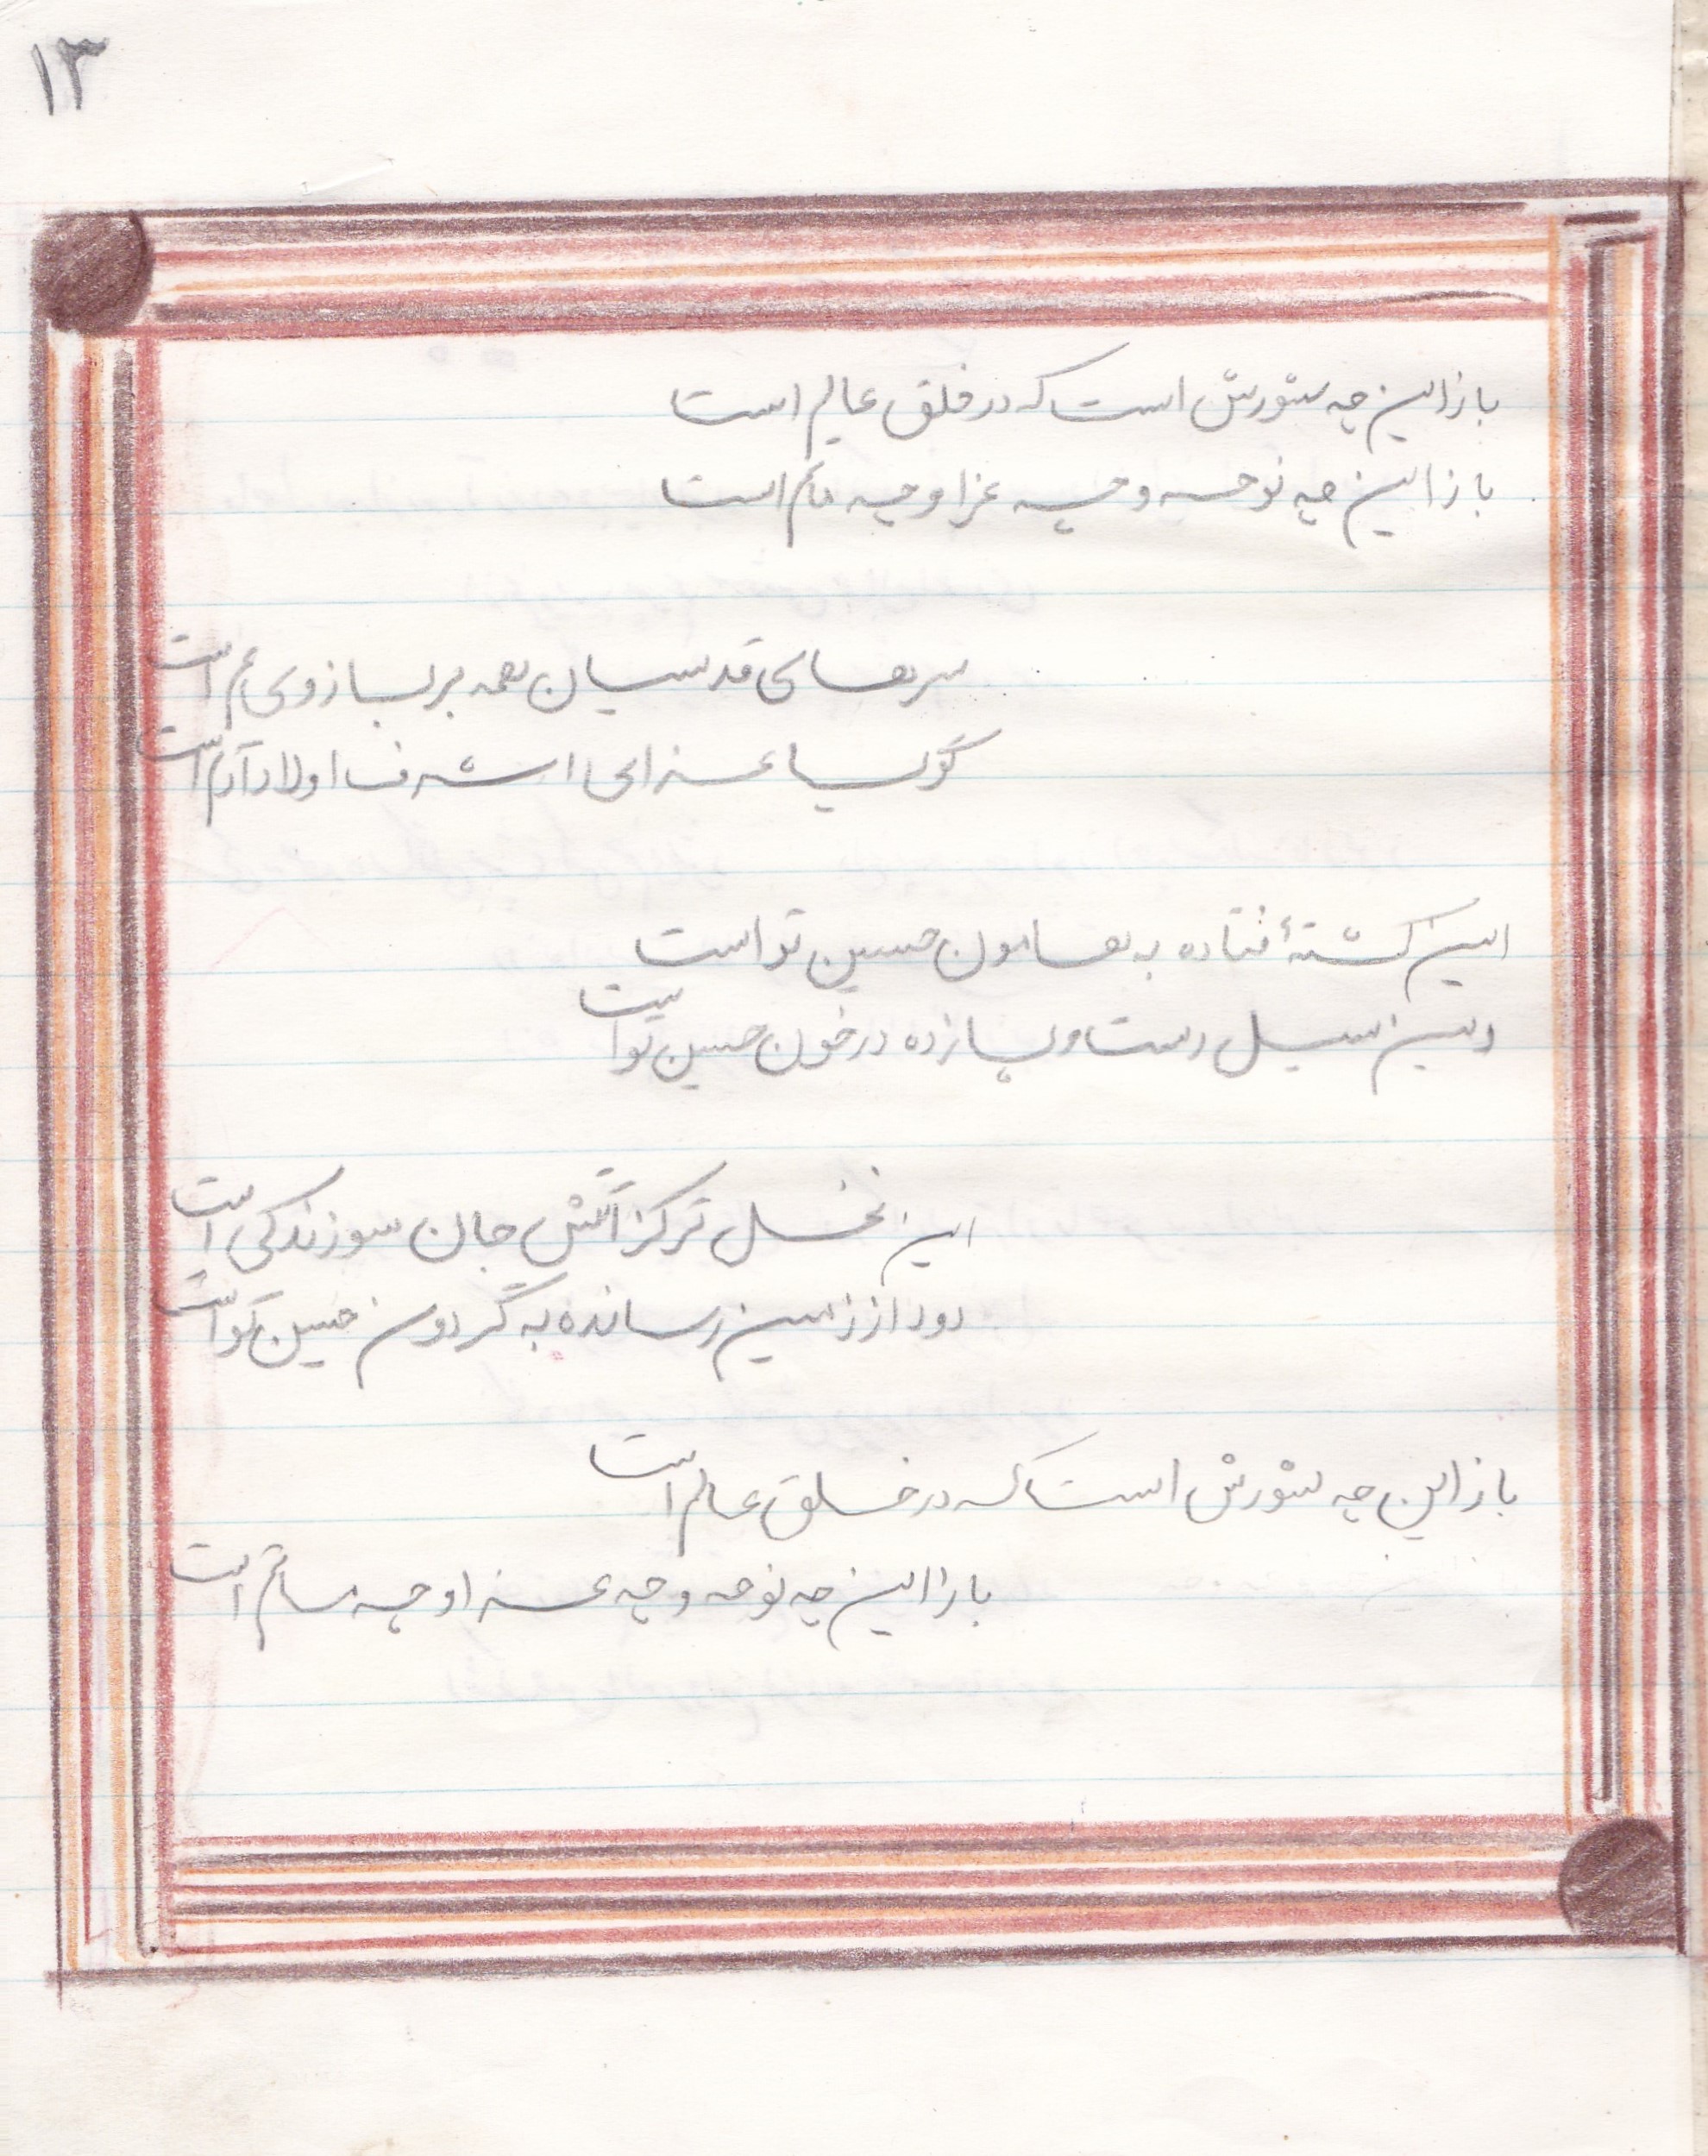 ۱۳
باز این چه شورش است که در خلق عالم است
باز این چه نوحه و چه عزا و چه ماتم است
سرهای قدسیان همه بر بازوی غم است
گویا عزای اشرف اولاد آدم است
این کشتهٔ فتاده به هامون حسین تو است
وین سیل دست و پا زده در خون حسین تو است
این نخل تر کز آتش جان سوز زندگی است
دود از زمین رسانده به گردون حسین تو است
باز این چه شورش است که در خلق عالم است
باز این چه نوحه و چه عزا و چه ماتم است